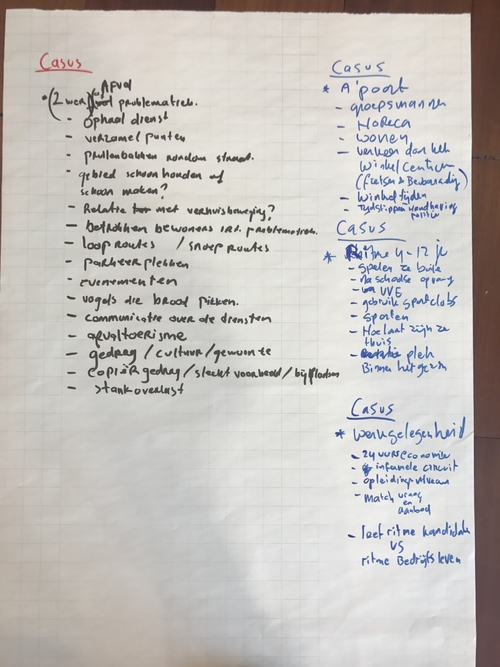 Casus
• (Zwerf) Afval problematiek.
- ophaal dienst
- verzamel punten
- prullenbakken rondom straat.
- gebied schoon houden of
schoon maken?
- Relatie met verhuisbeweging?
- betrokken bewoners problematiek.
- looproutes / snoeproutes
- parkeerplekken
- evenementen
- vogels die brood pikken.
- communicatie over de diensten
- afvaltoerisme
- gedrag / cultuur / gewoonte
- copiër gedrag / slecht voorbeeld / bijplaatsen
- stankoverlast
Casus
* A'poort
- groepsmannen
- Horeca
- wonen
- verkeer door het
winkelcentrum
(fietsen & Bevoorrading)
- winkeltijden
- Tijdstippen handhaving
politie
Casus
* Ritme 4-12 jr
- spelen ze buiten
- naschoolse opvang
- VVE
- gebruik sportclubs
- sporten
- Hoe laat zijn ze
thuis
- plek
Binnen het gezin
Casus
* werkgelegenheid
- 24 uurs economie
- informele circuit
- opleidingsniveau
- Match vraag
en
aanbod
- leef ritme kandidate
VS
ritme Bedrijfsleven